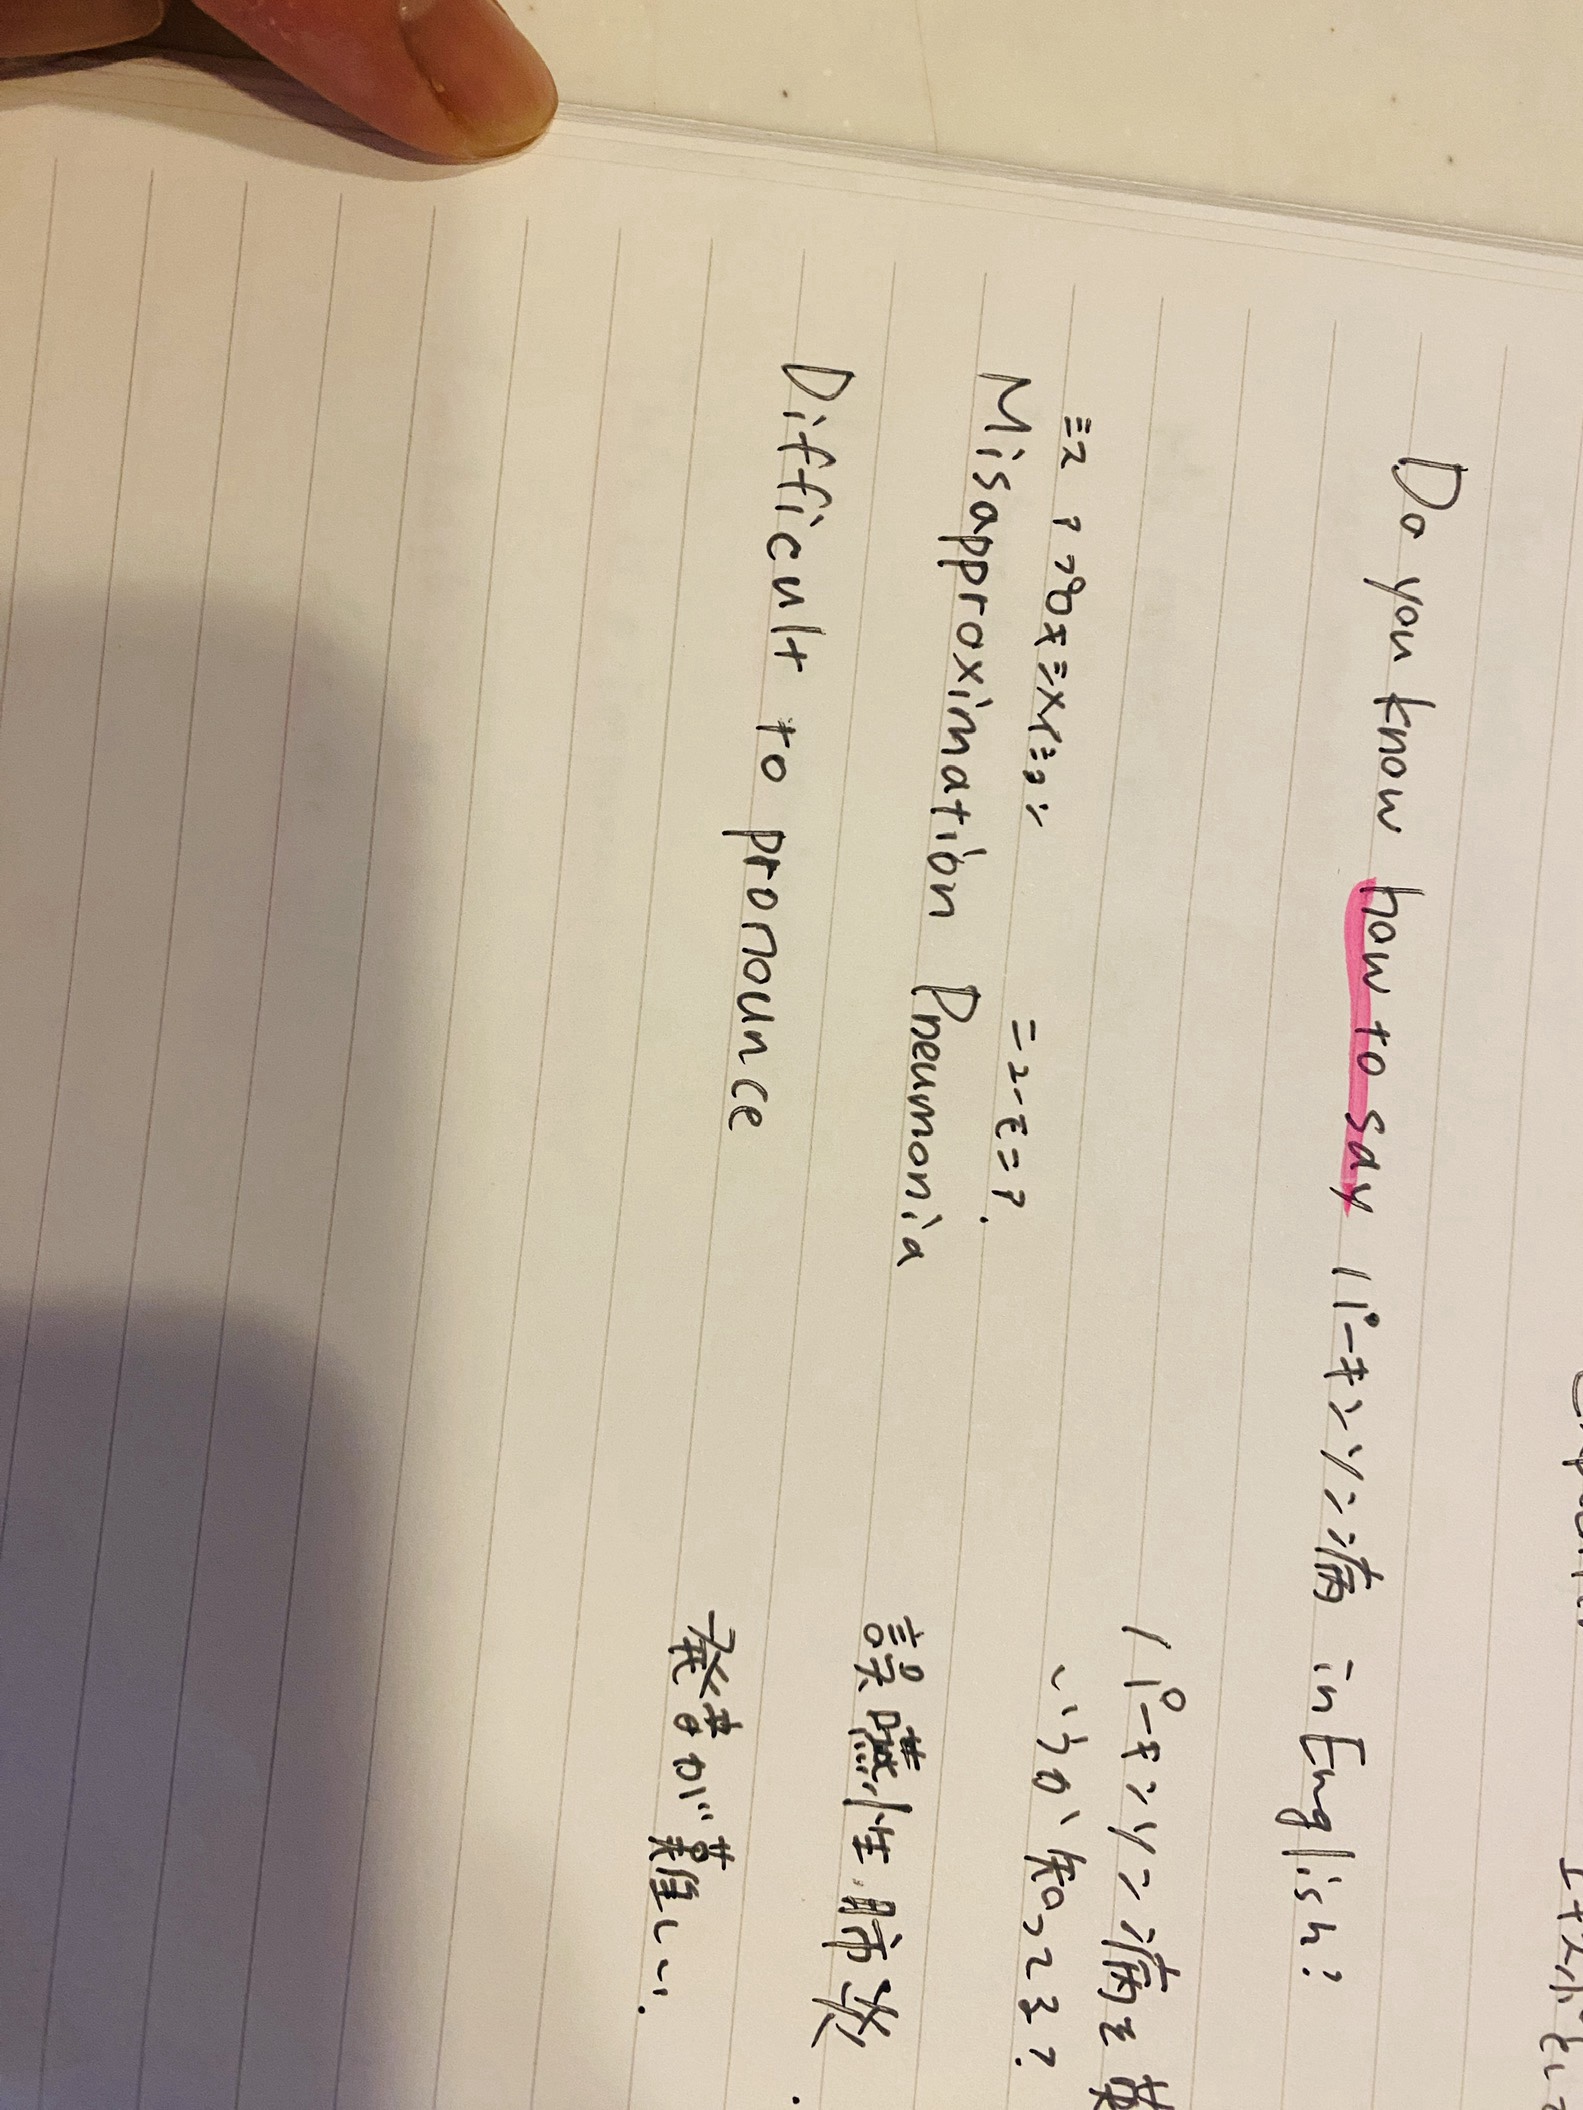 Do you know how to say パーキンソン病 in English?
パーキンソン病を英
いうか知ってる?
ミスアプロキシメイション ニューモニア.
Misapproximation Pneumonia
誤嚥性肺炎.
Difficult to pronounce
発音が難しい.